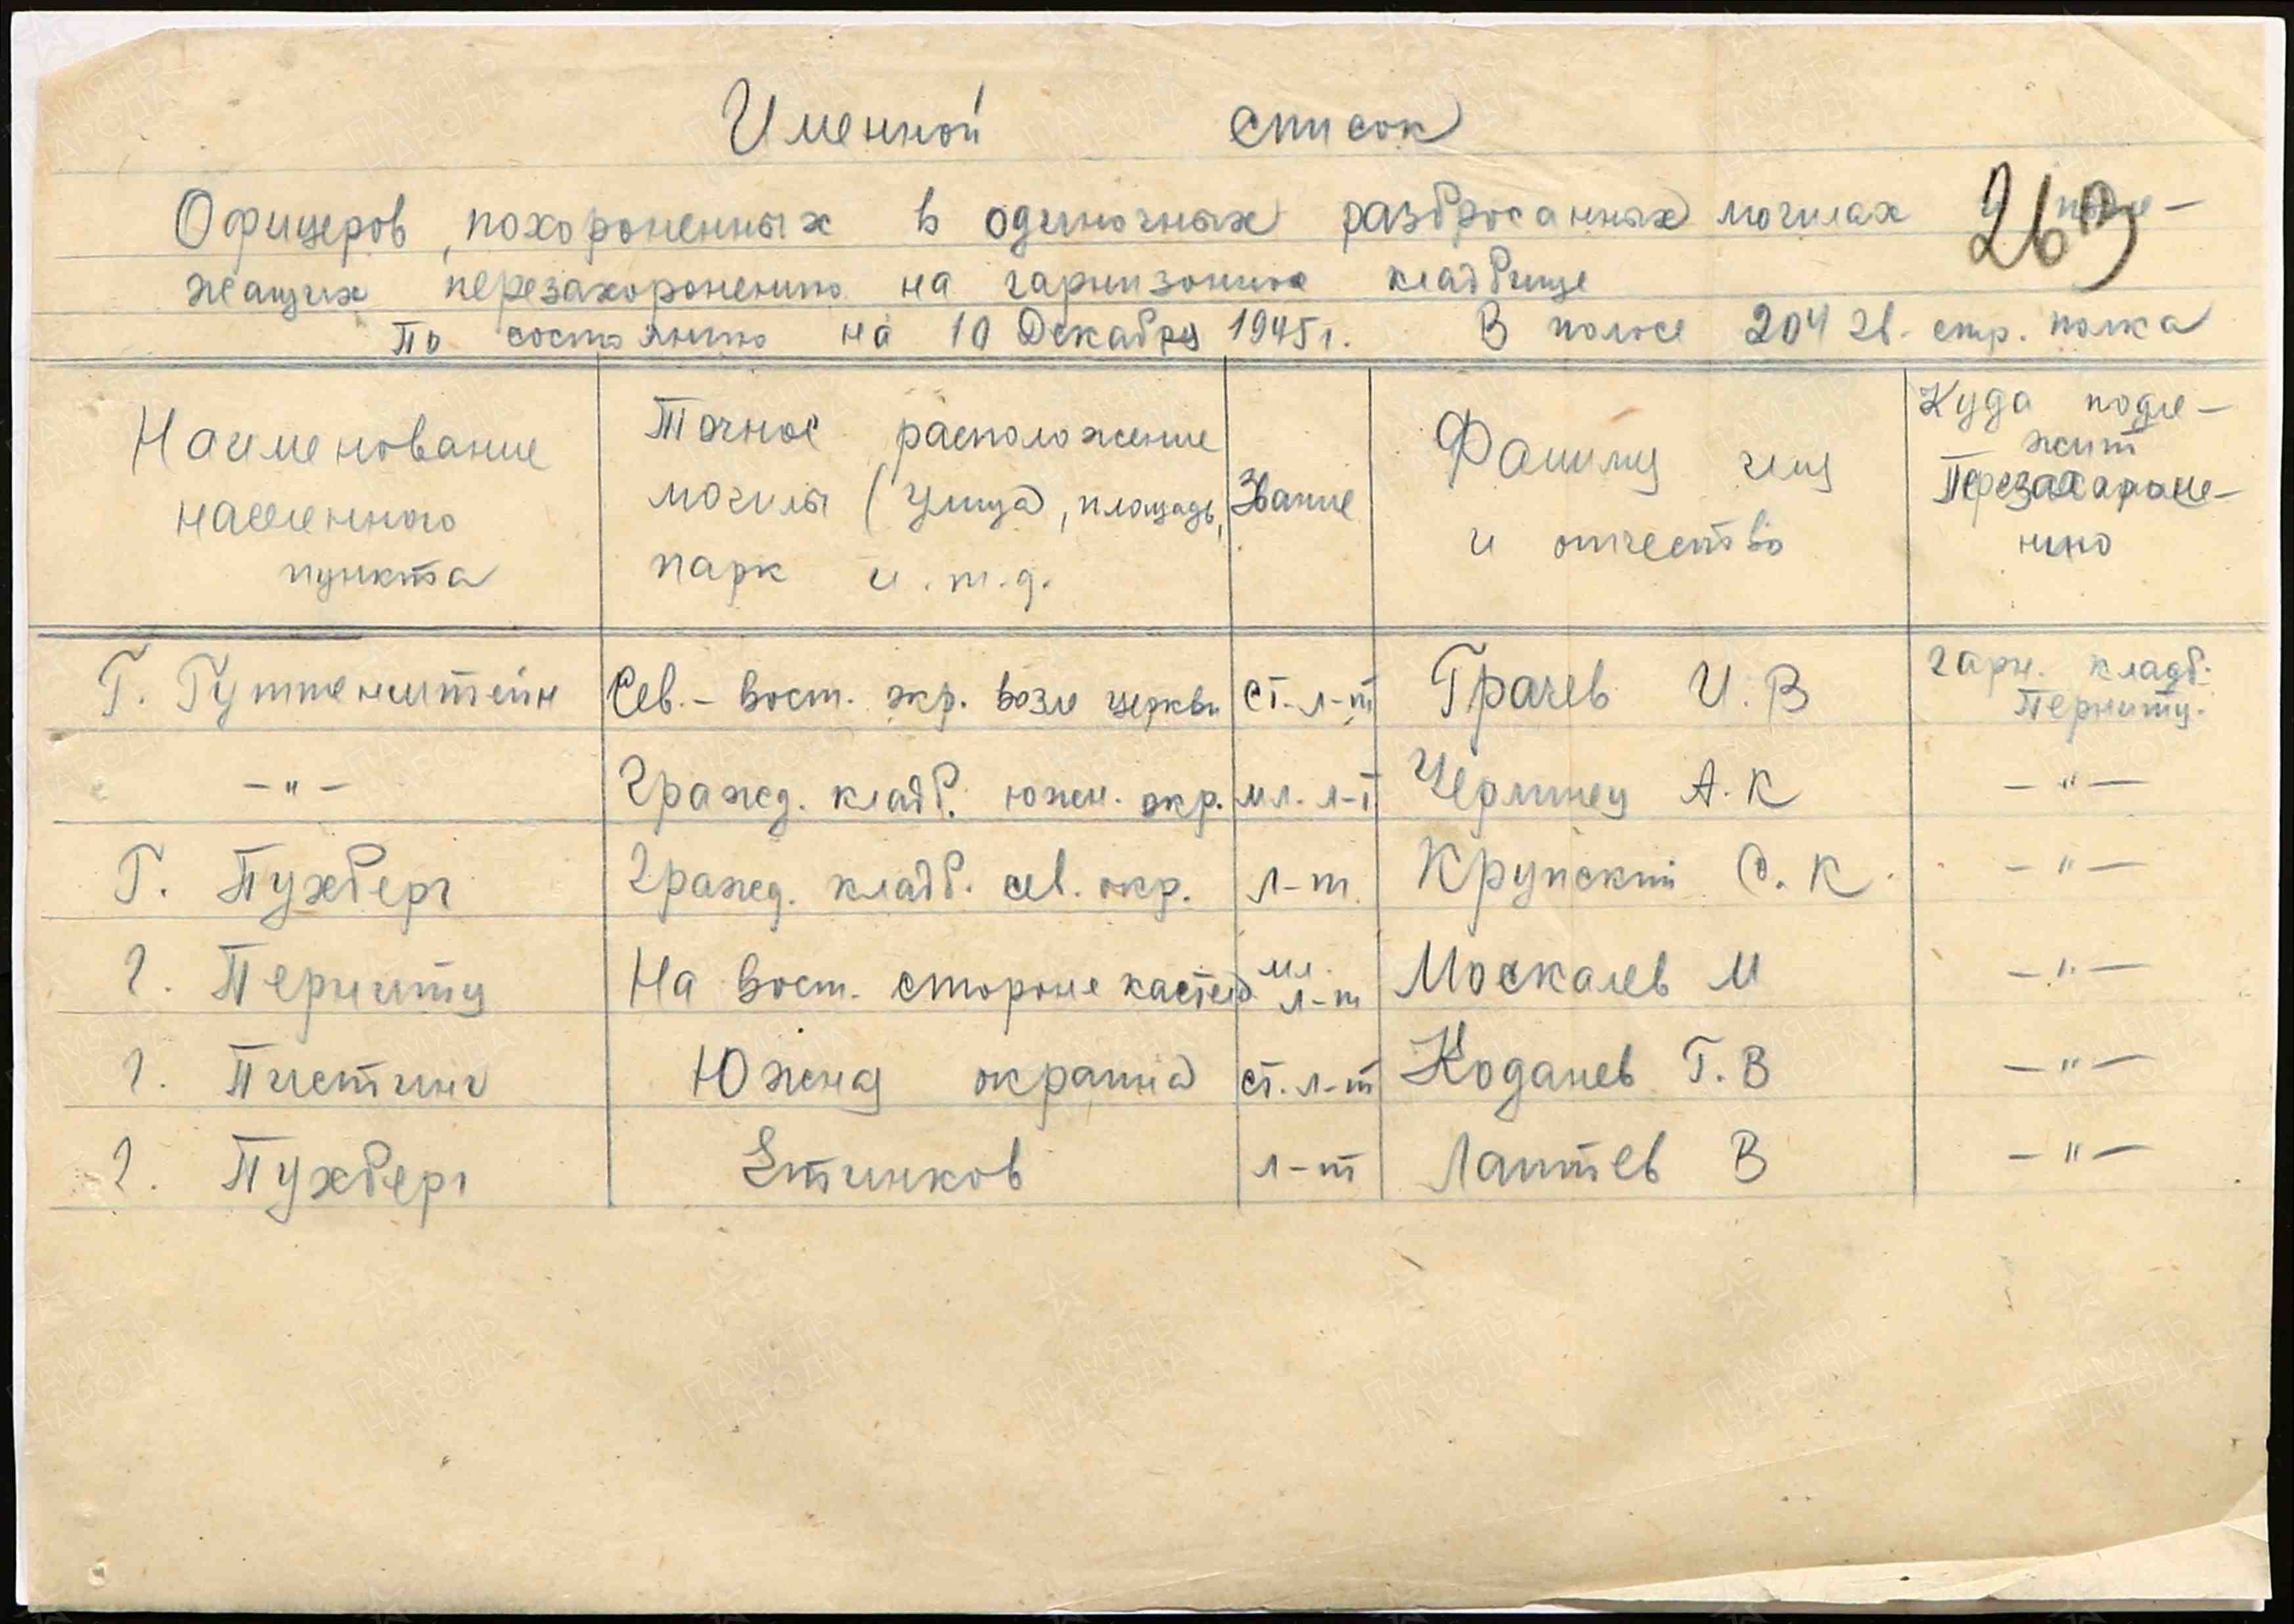 Именной список
Офицеров, похороненных в одиночных разбросанных могилах и подле-
263
жащих перезахоронению на гарнизонное кладбище
По состоянию на 10 Декабря 1945 г. В полосе 204 гв. стр. полка
Наименование населенного пункта
Точное расположение могилы (улица, площадь, парк и. т. д.
Звание
Фамилия имя и отчество
Куда подле-
жит
Перезахороне-
нию
Г. Гутенштейн Сев.-вост. окр. возле церкви ст. л-т Грачев И. В гарн. кладб. Перниту.
-"- Гражд. кладб. южн. окр. мл. л-т А. К -"-
Г. Пухберг Гражд. кладб. сев. окр. л-т. Крупский С. К. -"-
г. Перниту На вост. стороне мл. л-т Москалев М -"-
г. Пистинг Южная окраина ст. л-т Коданев Г. В -"-
г. Пухберг л-т Лаптев В -"-